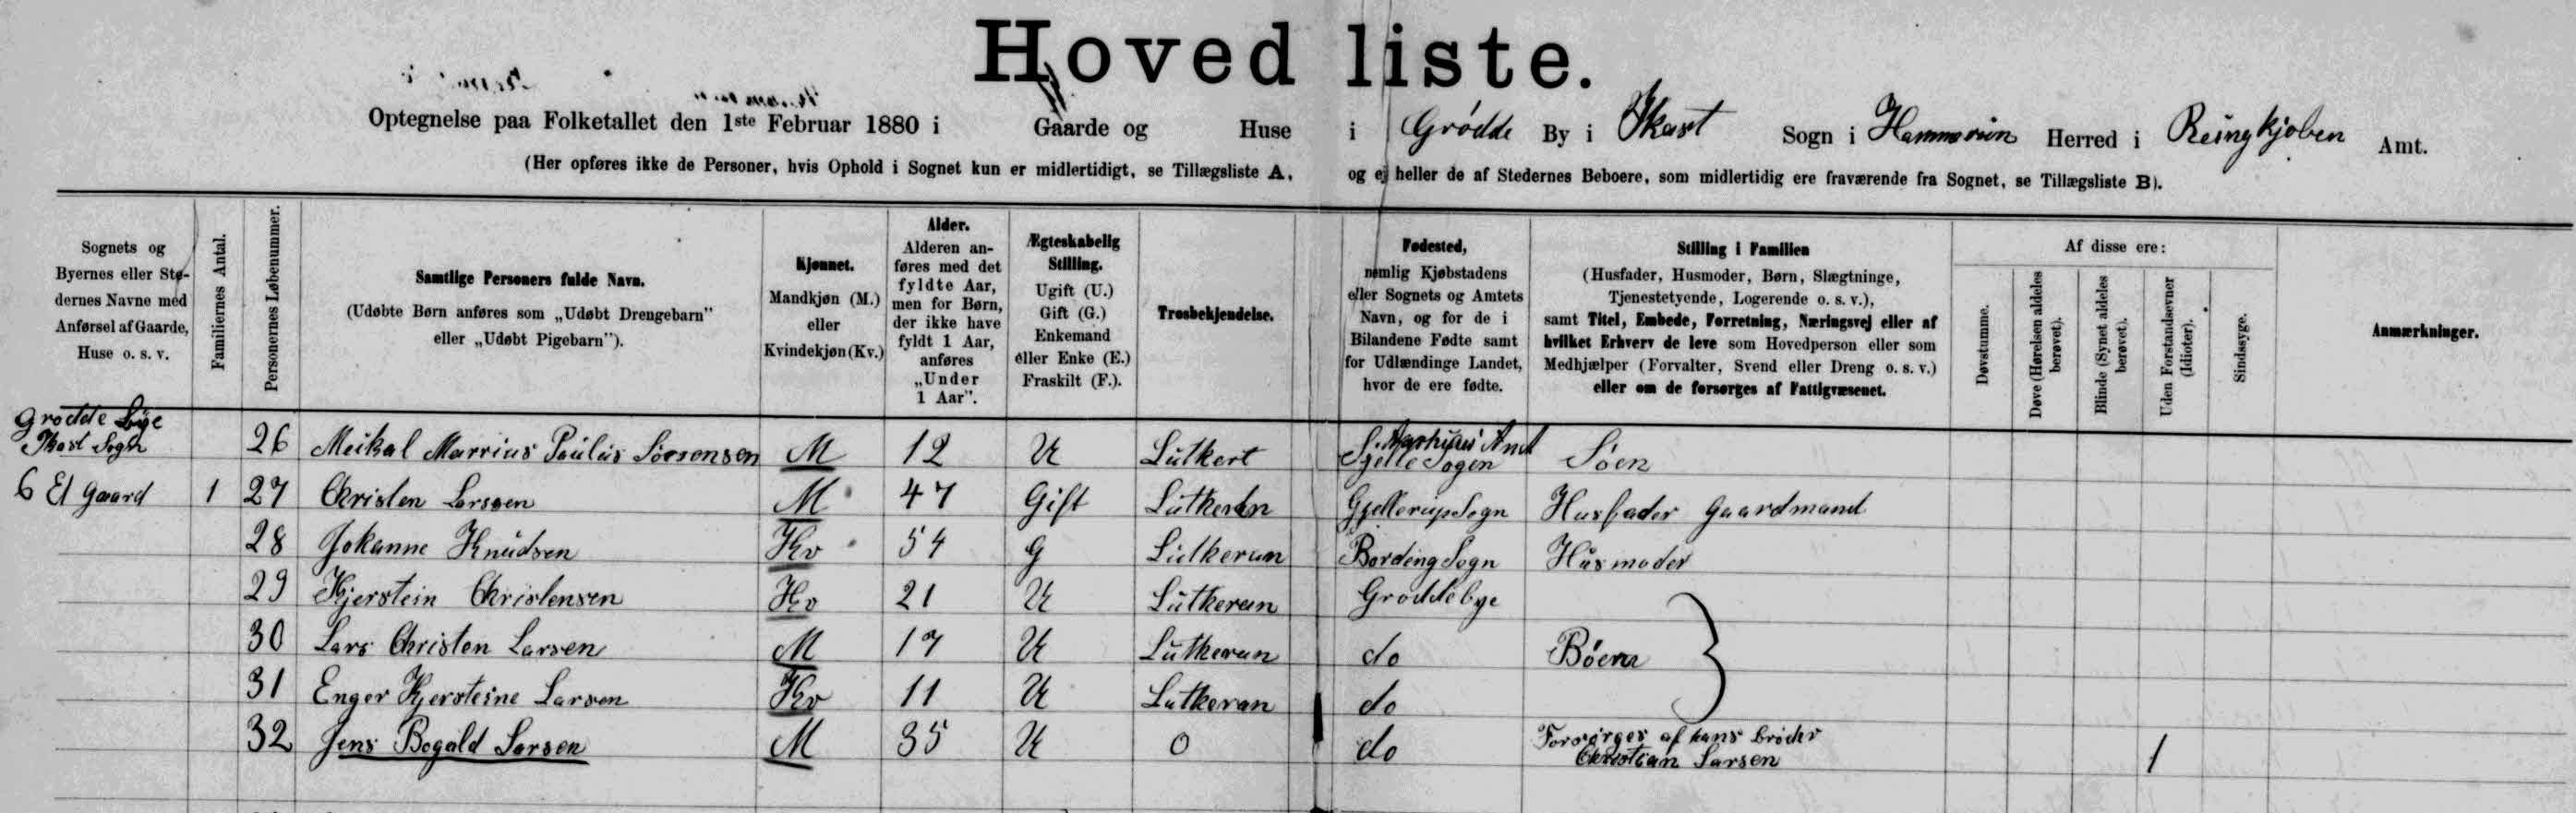 Hoved liste.
Optegnelse paa Folketallet den 1ste Februar 1880 i Gaarde og Huse i Grødde By i Ikast Sogn i Hammerum Herred i Reingkjøben Amt.
(Her opføres ikke de Personer, hvis Ophold i Sognet kun er midlertidigt, se Tillægsliste A, og ej heller de af Stedernes Beboere, som midlertidig ere fraværende fra Sognet, se Tillægsliste B).
Sognets og
Byernes eller Ste-
dernes Navne med
Anførsel af Gaarde,
Huse o. s. v.
Familiernes Antal.
Personernes Løbenummer.
Samtlige Personers fulde Navn.
(Udøbte Børn anføres som „Udøbt Drengebarn”
eller „Udøbt Pigebarn”).
Kjønnet.
Mandkjøn (M.)
eller
Kvindekjøn (Kv.)
Alder.
Alderen an-
føres med det
fyldte Aar,
men for Børn,
der ikke have
fyldt 1 Aar,
anføres
„Under
1 Aar”.
Ægteskabelig
Stilling.
Ugift (U.)
Gift (G.)
Enkemand
eller Enke (E.)
Fraskilt (F.).
Trosbekjendelse.
Fødested,
nemlig Kjøbstadens
eller Sognets og Amtets
Navn, og for de i
Bilandene Fødte samt
for Udlændinge Landet,
hvor de ere fødte.
Stilling i Familien
(Husfader, Husmoder, Børn, Slægtninge,
Tjenestetyende, Logerende o. s. v.),
samt Titel, Embede, Forretning, Næringsvej eller af
hvilket Erhverv de leve som Hovedperson eller som
Medhjælper (Forvalter, Svend eller Dreng o. s. v.)
eller om de forsørges af Fattigvæsenet.
Af disse ere:
Døvstumme.
Døve (Hørelsen aldeles
berøvet).
Blinde (Synet aldeles
berøvet).
Uden Forstandsevner
(Idioter).
Sindssyge.
Anmærkninger.
Grødde Bye
Ikast Sogn
26 Meikal Marrius Paulus Sörensen M 12 U Lutkert Aarhuus Amt
Sjelle Sogen Söen
6 El Gaard 1 27 Christen Larssen M 47 Gift Lutheran Gjellerup Sogn Husfader Gaardmand
28 Johanne Knudsen Kv 54 G Lutheran Bording Sogn Husmoder
29 Kjerstein Christensen Kv 21 U Lutheran Groddebye
30 Lars Christen Larsen M 17 U Lutheran do Böern
31 Enger Kjersteine Larsen Kv 11 U Lutheran do
32 Jens Bogald Larsen M 35 U 0 do Forsörges af hans bröder
Christian Larsen 1